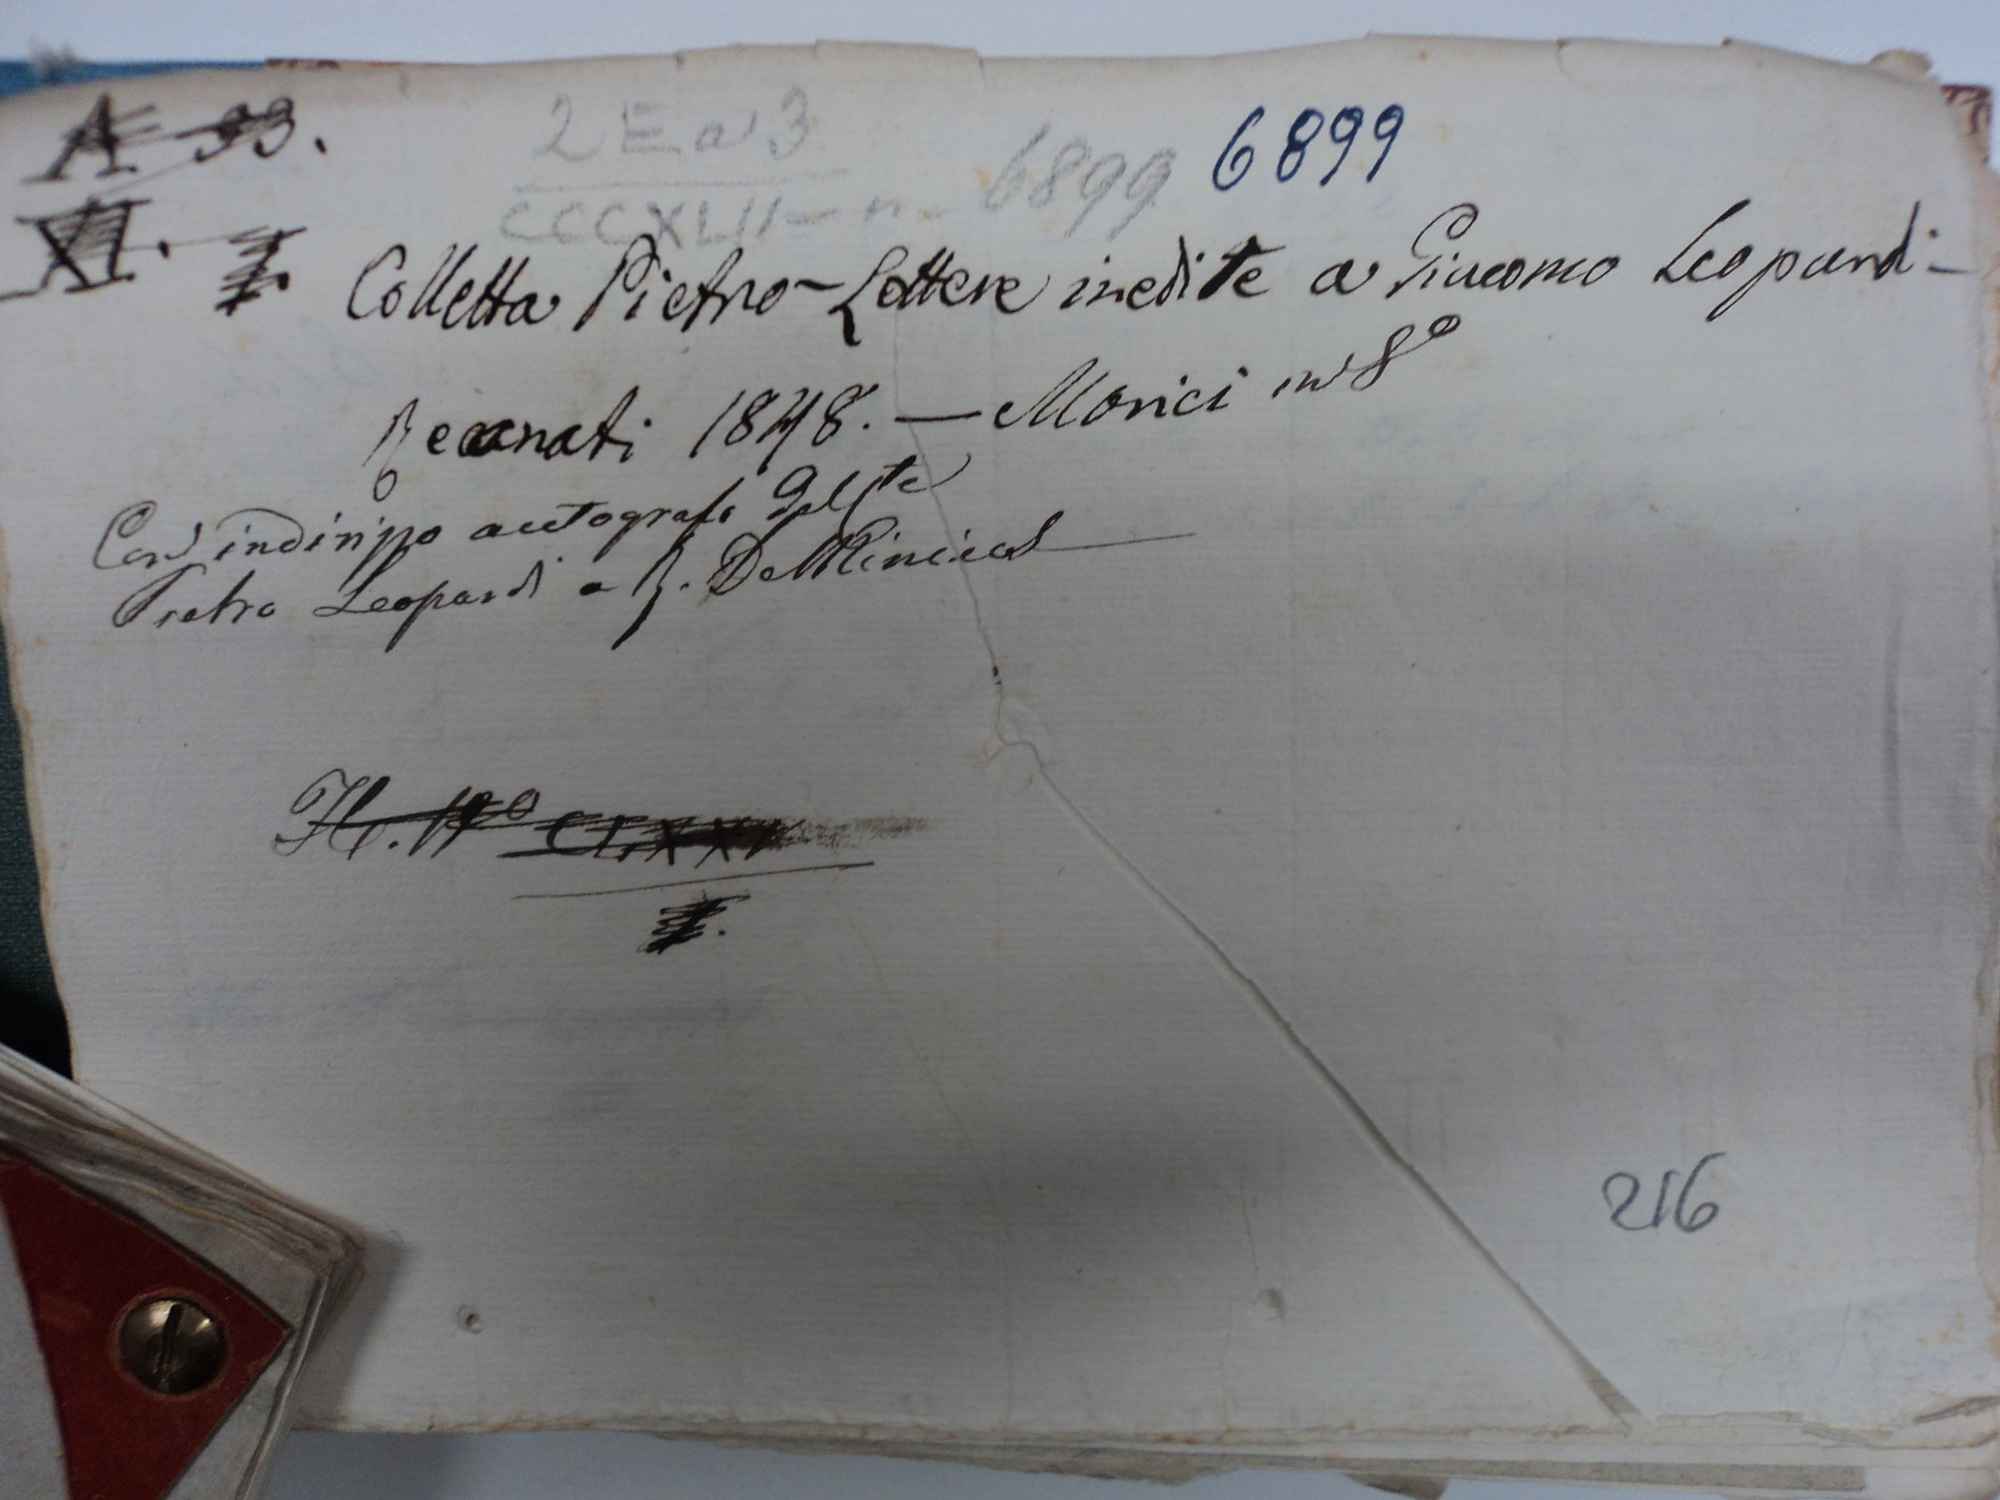 A 33.
XI.
2 E a 3
CCCXLII - n. 6899
6899
Colletta Pietro - Lettere inedite a Giacomo Leopardi -
Recanati 1848. - Morici in 8º
Con indirizzo autografo del Cte
Pietro Leopardi a R. De Minicis
H. Nº CLXXV
216